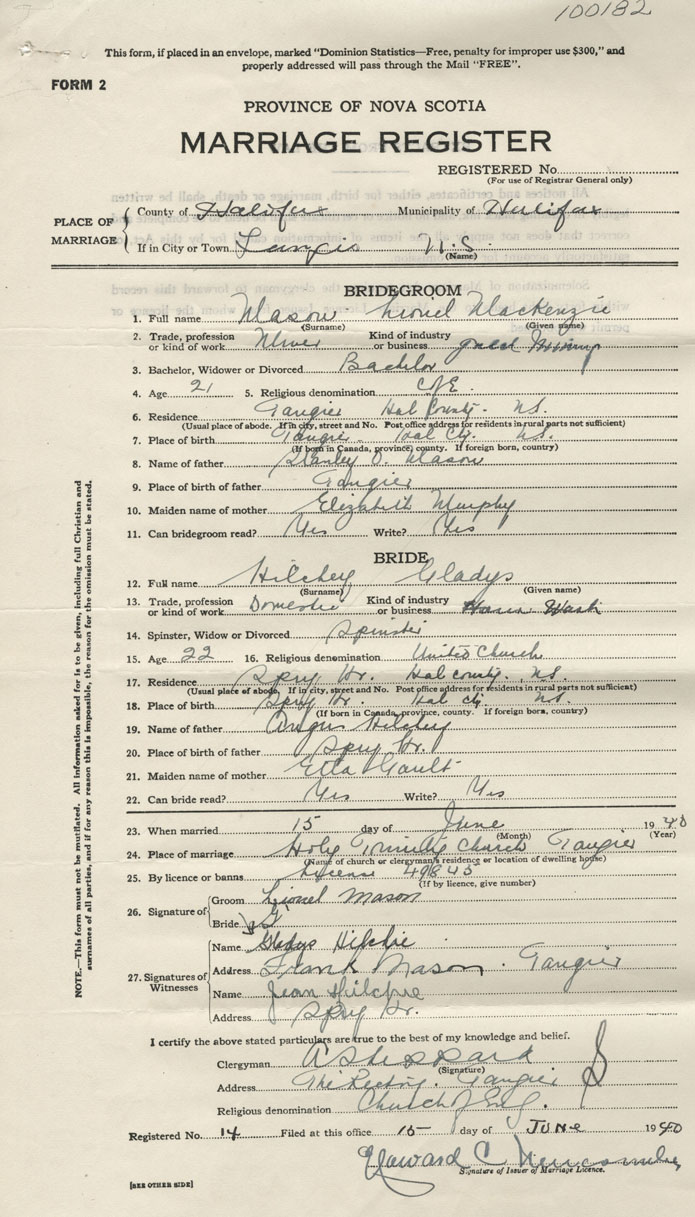 100182
This form, if placed in an envelope, marked "Dominion Statistics—Free, penalty for improper use $300," and
properly addressed will pass through the Mail "FREE".
FORM 2
PROVINCE OF NOVA SCOTIA
MARRIAGE REGISTER
REGISTERED No.
(For use of Registrar General only)
PLACE OF MARRIAGE
County of Halifax Municipality of Halifax
If in City or Town Tangier N.S.
(Name)
BRIDEGROOM
1. Full name Mason Lionel Mackenzie
(Surname) (Given name)
2. Trade, profession or kind of work Miner Kind of industry or business Gold Mining
3. Bachelor, Widower or Divorced Bachelor
4. Age 21 5. Religious denomination C of E
6. Residence Tangier Hal County. N.S.
(Usual place of abode. If in city, street and No. Post office address for residents in rural parts not sufficient)
7. Place of birth Tangier Hal Cty. N.S.
(If born in Canada, province, county. If foreign born, country)
8. Name of father Stanley O. Mason
9. Place of birth of father Tangier
10. Maiden name of mother Elizabeth Murphy
11. Can bridegroom read? Yes Write? Yes
BRIDE
12. Full name Hilchey Gladys
(Surname) (Given name)
13. Trade, profession or kind of work Domestic Kind of industry or business House Work
14. Spinster, Widow or Divorced Spinster
15. Age 22 16. Religious denomination United Church
17. Residence Spry Hr. Hal county. N.S.
(Usual place of abode. If in city, street and No. Post office address for residents in rural parts not sufficient)
18. Place of birth Spry Hr. Hal cty. N.S.
(If born in Canada, province, county. If foreign born, country)
19. Name of father Angus Hilchey
20. Place of birth of father Spry Hr.
21. Maiden name of mother Etta Gault
22. Can bride read? Yes Write? Yes
23. When married 15 day of June 1940
(Month) (Year)
24. Place of marriage Holy Trinity Church Tangier
(Name of church or clergyman's residence or location of dwelling house)
25. By licence or banns license 49845
(If by licence, give number)
26. Signature of
Groom Lionel Mason
Bride
27. Signatures of Witnesses
Name Gladys Hilchie
Address Frank Mason. Tangier
Name Jean Hilchie
Address Spry Hr.
I certify the above stated particulars are true to the best of my knowledge and belief.
Clergyman A Sheppard
(Signature)
Address The Rectory. Tangier
Religious denomination Church of Eng.
Registered No. 14 Filed at this office 15 day of JUNE 1940
Howard C Newcombe
Signature of Issuer of Marriage Licence.
[SEE OTHER SIDE]
NOTE.—This form must not be mutilated. All information asked for is to be given, including full Christian and
surnames of all parties, and if for any reason this is impossible, the reason for the omission must be stated.